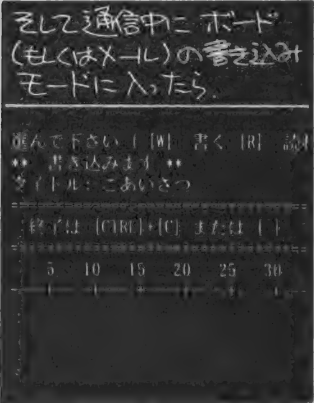 そして通信中に ボード
(もしくはメール)の書き込み
モードに入ったら
選んで下さい ( [W] 書く [R] 読
** 書き込みます **
タイトル:ごあいさつ
終了は [CTRL]+[C] または
5 10 15 20 25 30